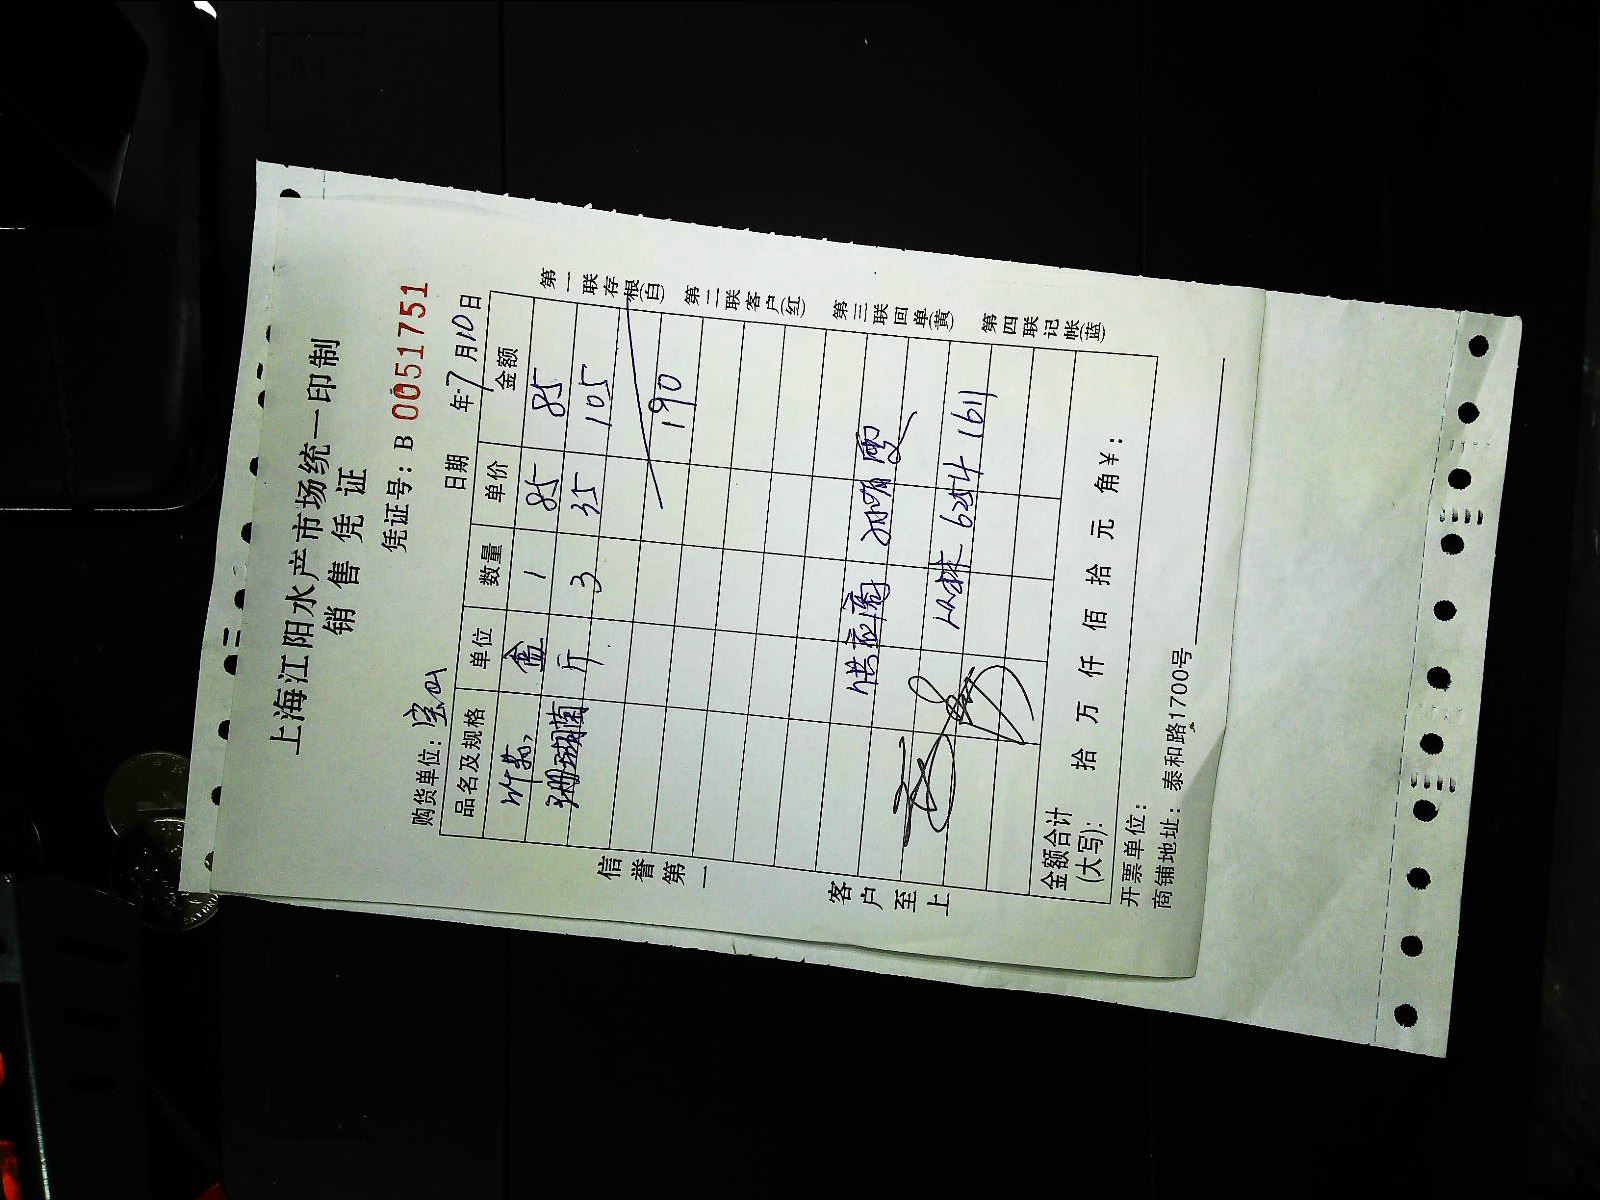 上海江阳水产市场统一印制
销售凭证
凭证号：B 0051751
购货单位：宝山 日期 年 7月10日
品名及规格 单位 数量 单价 金额
竹荪 盒 1 85 85
珊瑚菌 斤 3 35 105
190
供应商
6254 1611
金额合计
(大写)： 拾 万 仟 佰 拾 元 角￥：
开票单位：
商铺地址：泰和路1700号
信誉第一
客户至上
第一联存根(白)
第二联客户(红)
第三联回单(黄)
第四联记帐(蓝)